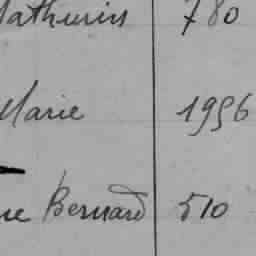 Mathurin 780
Marie 1956
ne Bernard 510